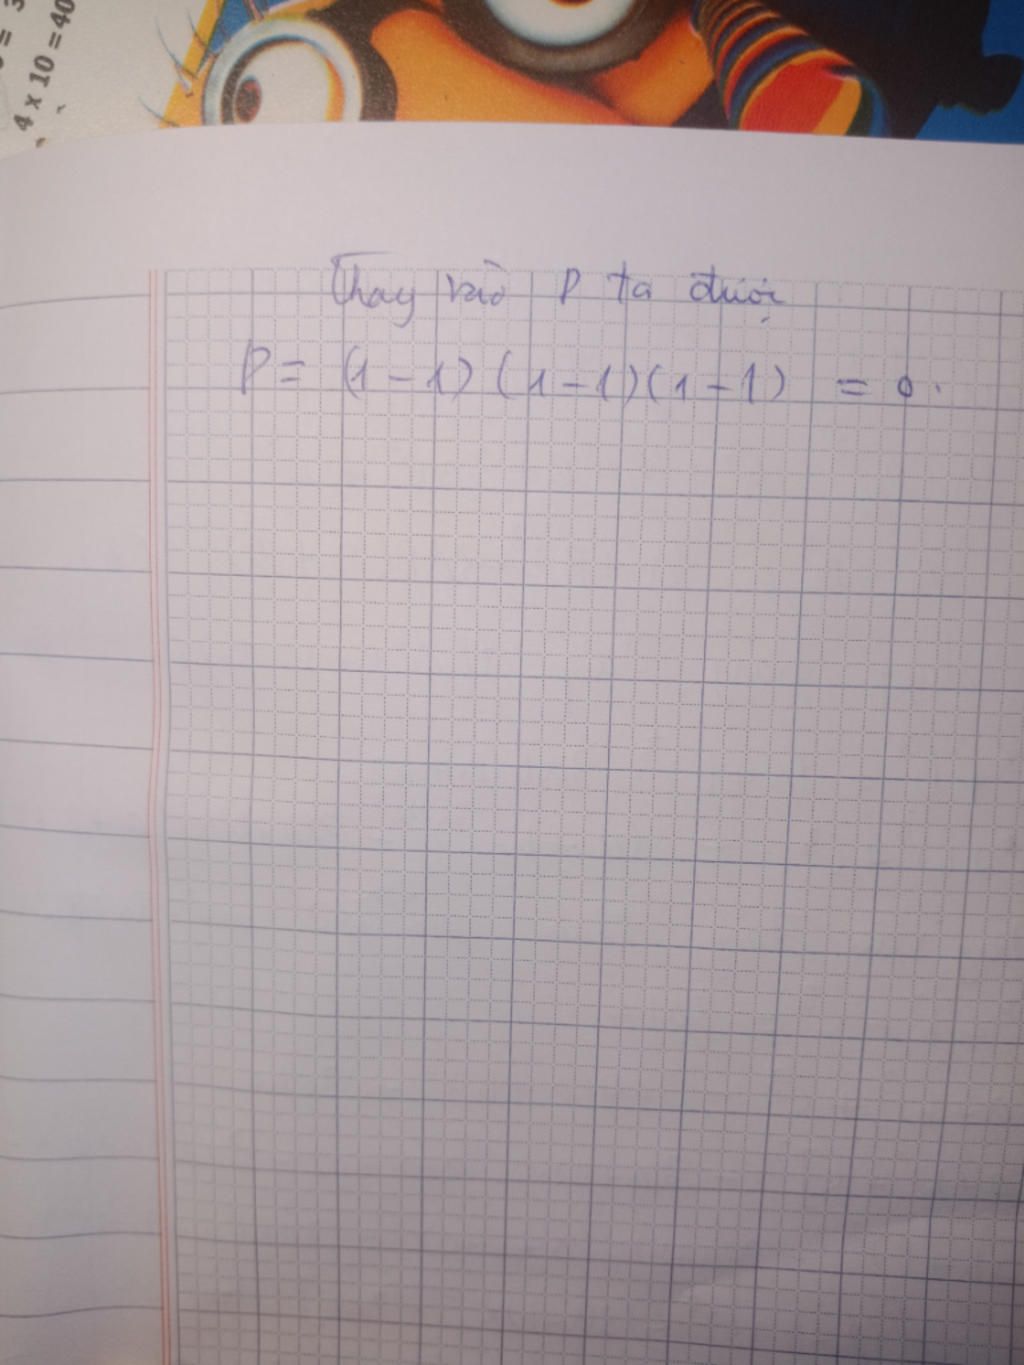 4 x 10 = 40
Thay vào P ta được
P = (1 - 1) (1 - 1) (1 - 1) = 0.